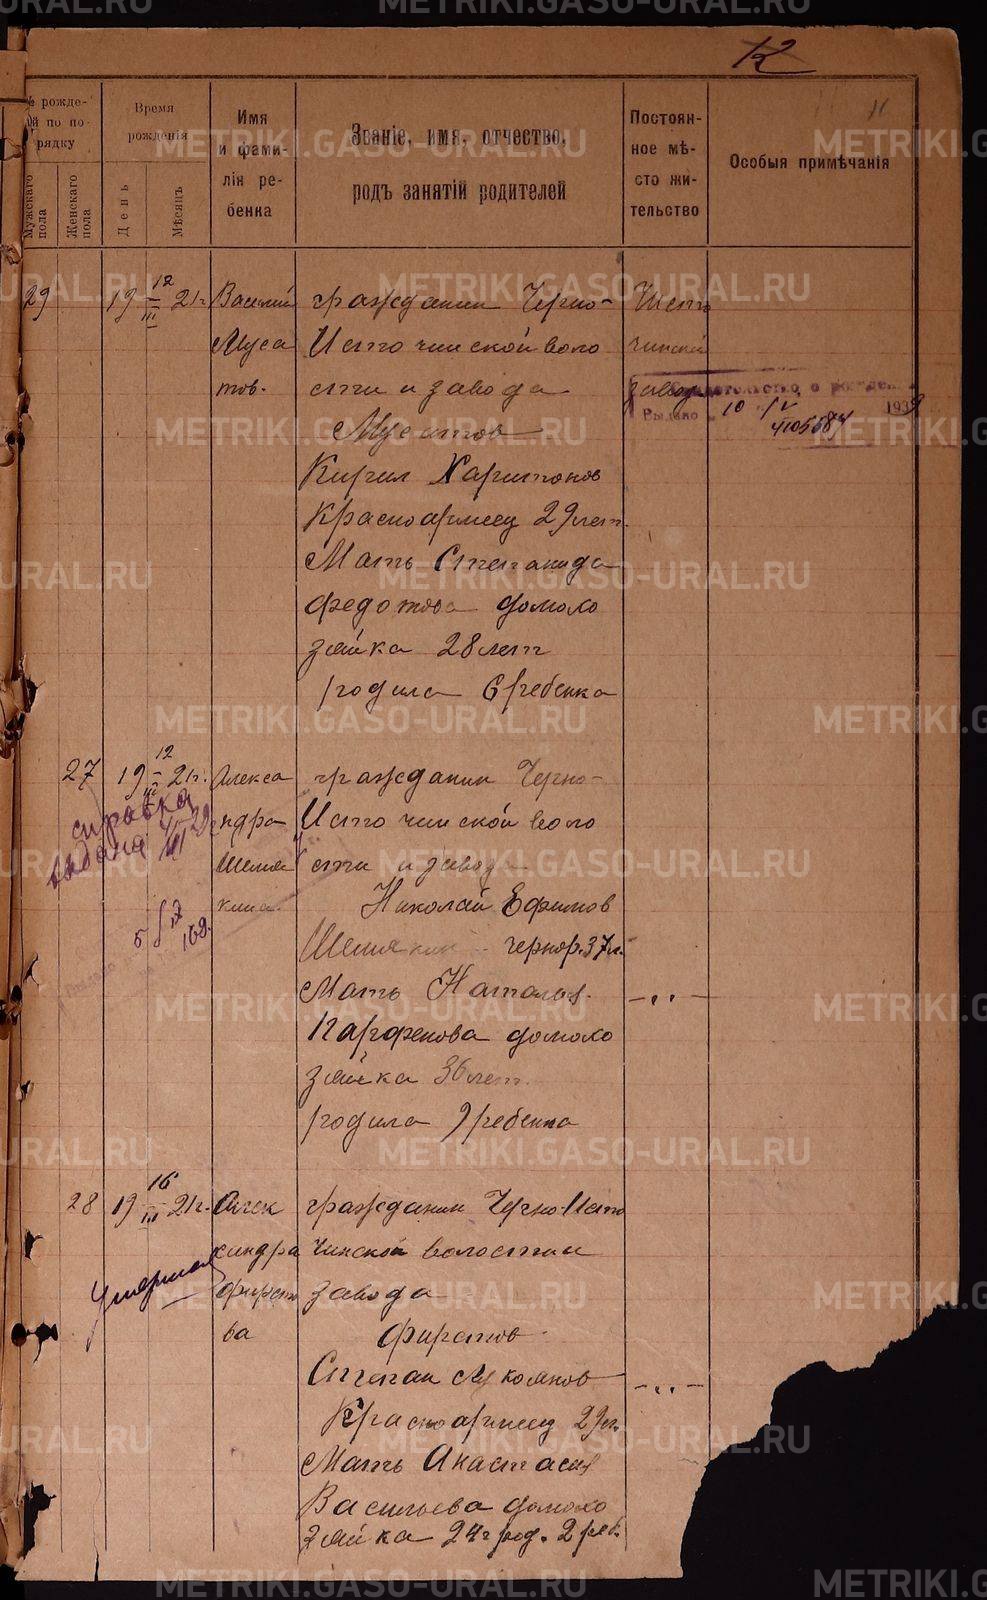 METRIKI.GASO-URAL.RU
12
№ рожде-
й по по-
рядку
Мужскаго пола
Женскаго пола
Время
рожденія
День
Мѣсяцъ
Имя
и фами-
лія ре-
бенка
Званіе, имя, отчество,
родъ занятій родителей
Постоян-
ное мѣ-
сто жи-
тельство
Особыя примѣчанія
29
19 12/III 21г.
Василий
Муса
тов.
гражданин Черно-
Источинской воло
сти и завода
Мусатов
Кирил Харитонов
Красноармеец 29 лет.
Мать Степанида
Федотова домохо
зяйка 28 лет
родила 6 ребенка
Чисто
чинский
завод
Свидетельство о рожден
Выдано 10 / V 1939
4105584
27
19 12/III 21г.
справка
выдана
Алекса
ндра
Шемя
кина.
гражданин Черно-
Источинской воло
сти и завода
Николай Ефимов
Шемякин чернор. 37 л.
Мать Наталья
Парфенова домохо
зяйка 36 лет.
родила 9 ребенка
– „ –
28
19 16/III 21г.
Умерла
Алек
сандра
Фирсто
ва
гражданин Черно-Исто
чинской волости и
завода
Фирстов
Степан Лукоянов
Красноармеец 29 л.
Мать Анастасия
Васильева домохо
зяйка 24 г род. 2 реб.
– „ –